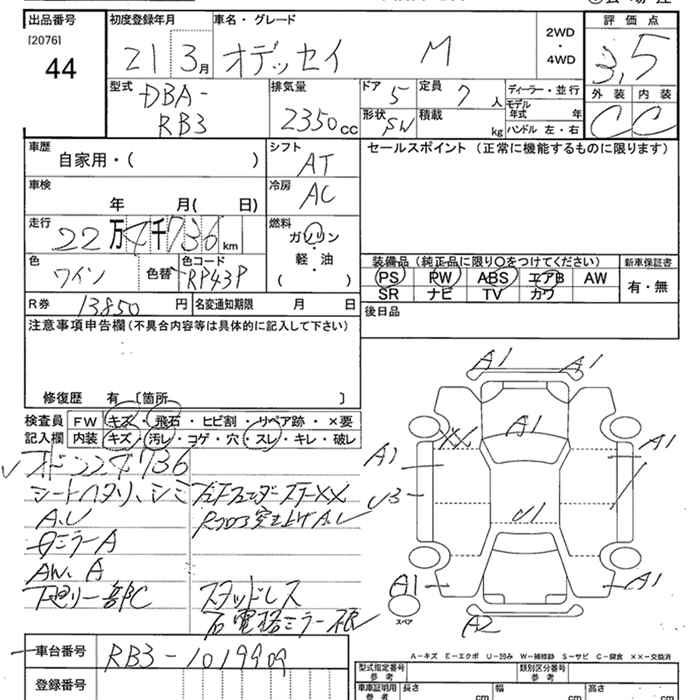 出品番号
[2076]
44
初度登録年月
21 3月
車名・グレード
オデッセイ M
2WD
・
4WD
評価点
3,5
外装 内装
C C
型式
DBA-
RB3
排気量
2350cc
ドア 5
形状 SW
定員 7人
積載 kg
ディーラー・並行
モデル
年式 年
ハンドル 左・右
車歴
自家用・( )
シフト
AT
セールスポイント(正常に機能するものに限ります)
車検
年 月( 日)
冷房
AC
走行
22万4千736km
燃料
ガソリン
・
軽・油
( )
色
ワイン
色替
色コード
RP43P
装備品(純正品に限り〇をつけてください)
新車保証書
PS PW ABS エアB AW
SR ナビ TV カワ
有・無
R券 13850円
名変通知期限 月 日
後日品
注意事項申告欄(不具合内容等は具体的に記入して下さい)
修復歴 有 〔箇所 〕
検査員
記入欄
FW キズ・飛石・ヒビ割・リペア跡・×要
内装 キズ・汚レ・コゲ・穴・スレ・キレ・破レ
シートヘタリ、シミ
A.U
左Fフェンダー
ミラーA
AW.A
下廻り一部C
スタッドレス
右電格ミラー
A1 A1
A1
XX
A1 A1
U3
U1
A1 A1
A2
スペア
A−キズ E−エクボ U−凹み W−補修跡 S−サビ C−腐食 XX−交換済
車台番号
RB3-1019909
登録番号
型式指定番号
参考
類別区分番号
参考
車庫証明用
参考
長さ cm
幅 cm
高さ cm